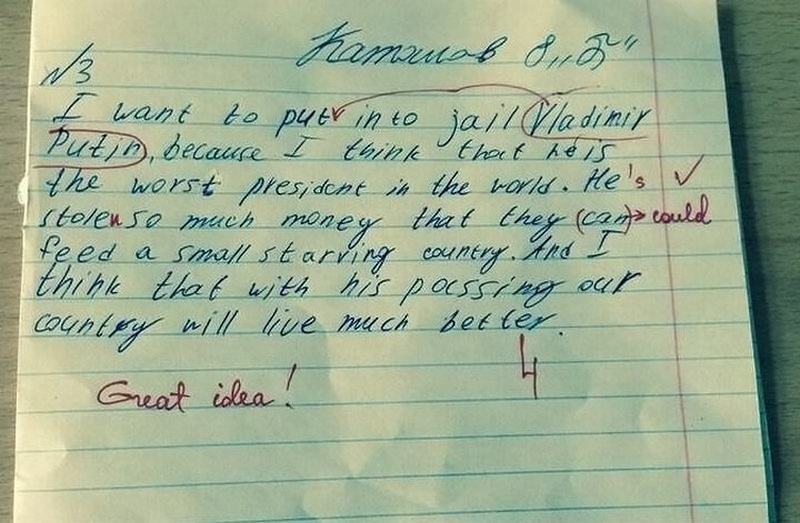 Катаилов 8 „Б“
№3
I want to put into jail Vladimir
Putin, because I think that he is
the worst president in the world. He's ✓
stolen so much money that they (can)→could
feed a small starving country. And I
think that with his passing our
country will live much better.
Great idea! 4